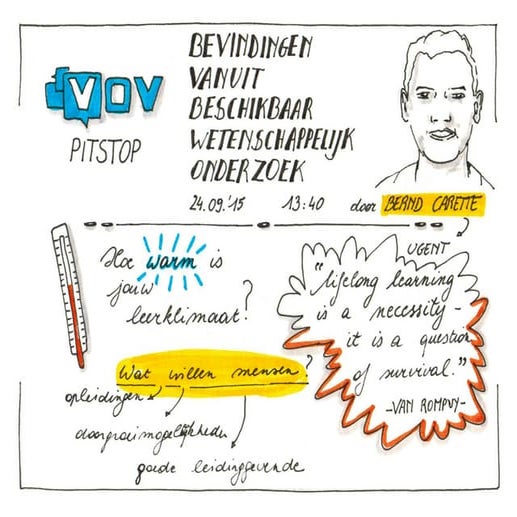 VOV
PITSTOP
BEVINDINGEN
VANUIT
BESCHIKBAAR
WETENSCHAPPELIJK
ONDERZOEK
24.09.'15 13:40 door BERND CARETTE
UGENT
Hoe warm is
jouw
leerklimaat?
"lifelong learning
is a necessity -
it is a question
of survival."
-VAN ROMPUY-
Wat willen mensen?
opleidingen
doorgroeimogelijkheden
goede leidinggevende